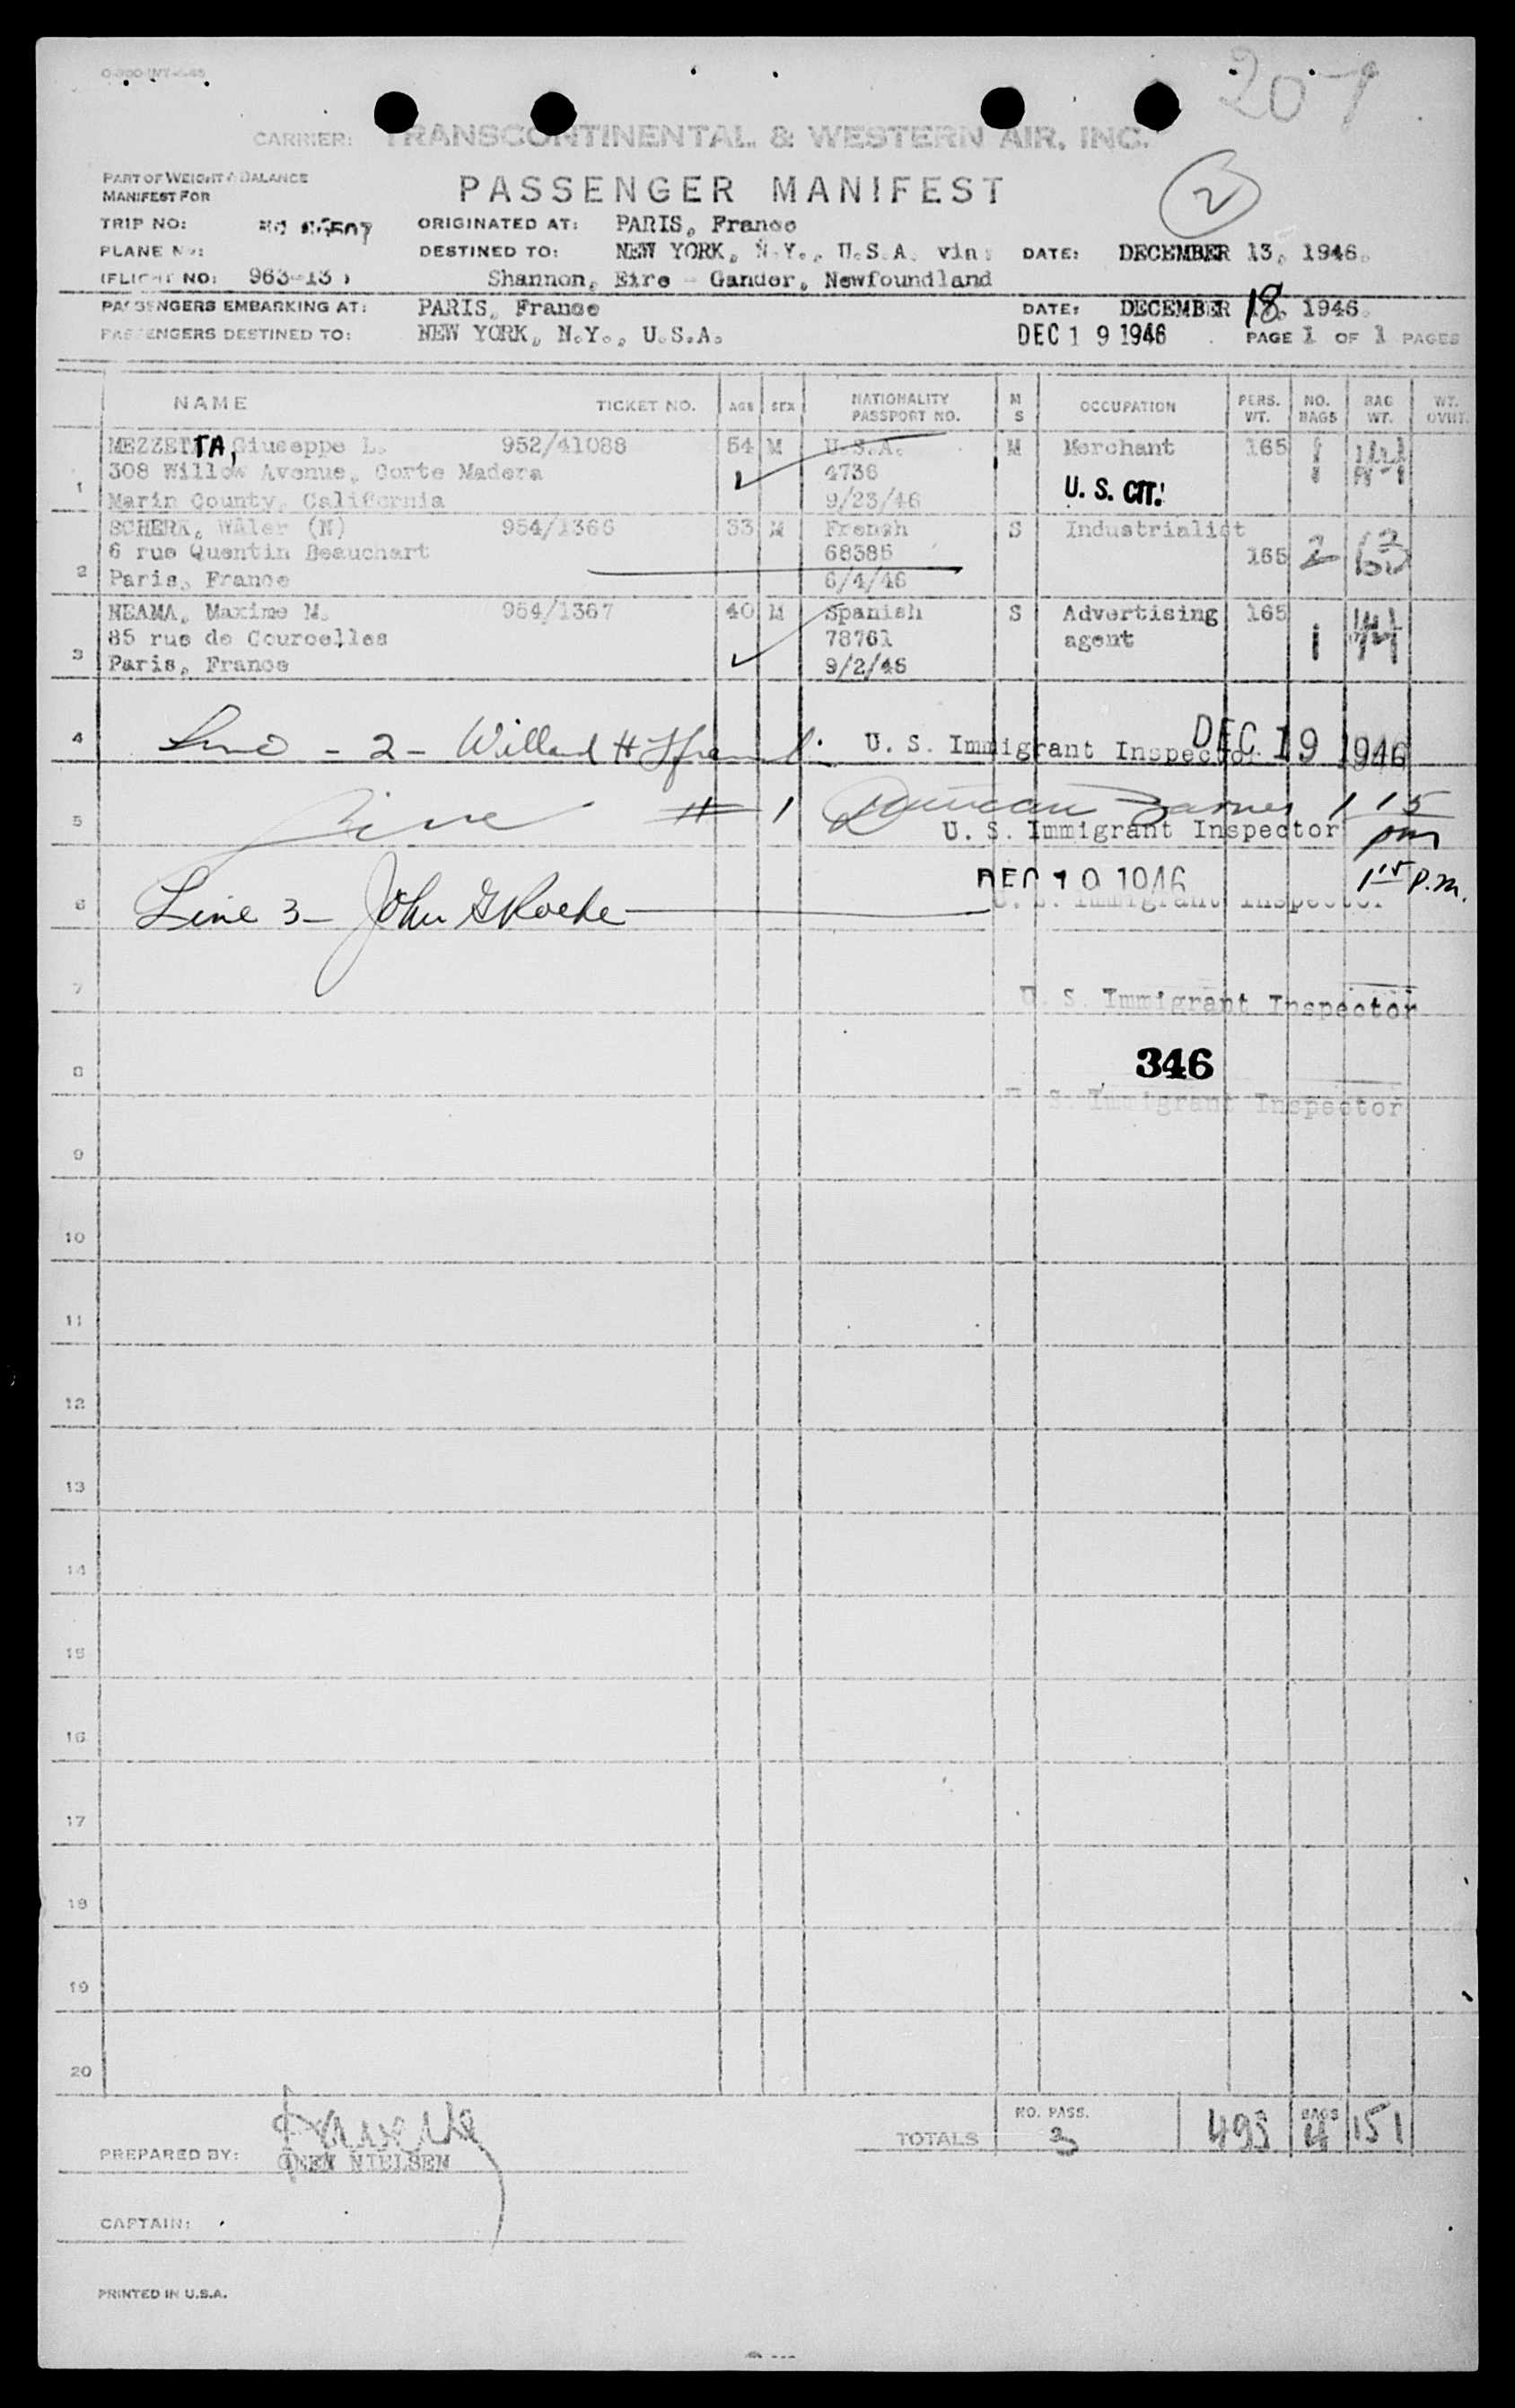 O-360 INV-6-45
207
CARRIER: TRANSCONTINENTAL & WESTERN AIR, INC.
PART OF WEIGHT & BALANCE
MANIFEST FOR
PASSENGER MANIFEST
2
TRIP NO:
ORIGINATED AT: PARIS, France
PLANE NO:
DESTINED TO: NEW YORK, N.Y., U.S.A. via: DATE: DECEMBER 13, 1946.
(FLIGHT NO: 963-13 )
Shannon, Eire - Gander, Newfoundland
PASSENGERS EMBARKING AT: PARIS, France DATE: DECEMBER 18, 1946.
PASSENGERS DESTINED TO: NEW YORK, N.Y., U.S.A. DEC 19 1946 PAGE 1 OF 1 PAGES
NAME TICKET NO. AGE SEX NATIONALITY PASSPORT NO. M S OCCUPATION PERS. WT. NO. BAGS BAG WT. WT. OVWT.
1 MEZZETTA, Giuseppe L. 952/41088 54 M U.S.A. M Merchant 165 1
308 Willow Avenue, Corte Madera 4736
Marin County, California 9/23/46 U. S. CIT.
2 SCHERK, Waler (N) 954/1366 33 M French S Industrialist
6 rue Quentin Beauchart 68385 165 2 63
Paris, France 6/4/46
3 NEAMA, Maxime M. 954/1367 40 M Spanish S Advertising 165
85 rue de Courcelles 78761 agent 1 44
Paris, France 9/2/46
4 Line - 2 - Willard H U. S. Immigrant Inspector DEC 19 1946
5 Line # 1 Duncan Barnes 1 15
U. S. Immigrant Inspector pm
DEC 19 1946 1 15 P.M.
6 Line 3 - John G Roche U. S. Immigrant Inspector
7 U. S. Immigrant Inspector
346
8 U. S. Immigrant Inspector
9
10
11
12
13
14
15
16
17
18
19
20
TOTALS NO. PASS. 3 495 BAGS 4 151
PREPARED BY: NIELSEN
CAPTAIN:
PRINTED IN U.S.A.